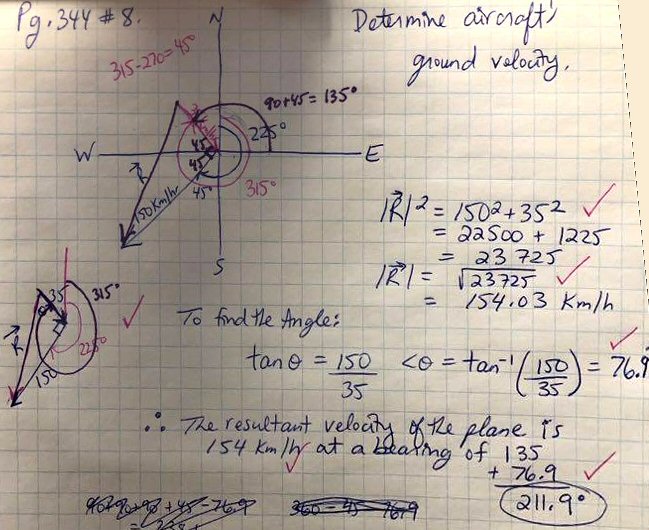 Pg. 344 # 8.
Determine aircraft's
ground velocity.
315-270=45°
N
90+45=135°
225°
W
E
45
45
45°
315°
R
150 km/hr
S
|R|² = 150² + 35² ✓
= 22500 + 1225
= 23 725
|R| = √23725 ✓
= 154.03 Km/h
35
315°
θ
225°
R
150
✓
To find the Angle:
tanθ = 150/35 <θ = tan⁻¹(150/35) = 76.9 ✓
∴ The resultant velocity of the plane is
154 km/hr at a bearing of 135
+ 76.9 ✓
211.9°
360 - 45 - 76.9